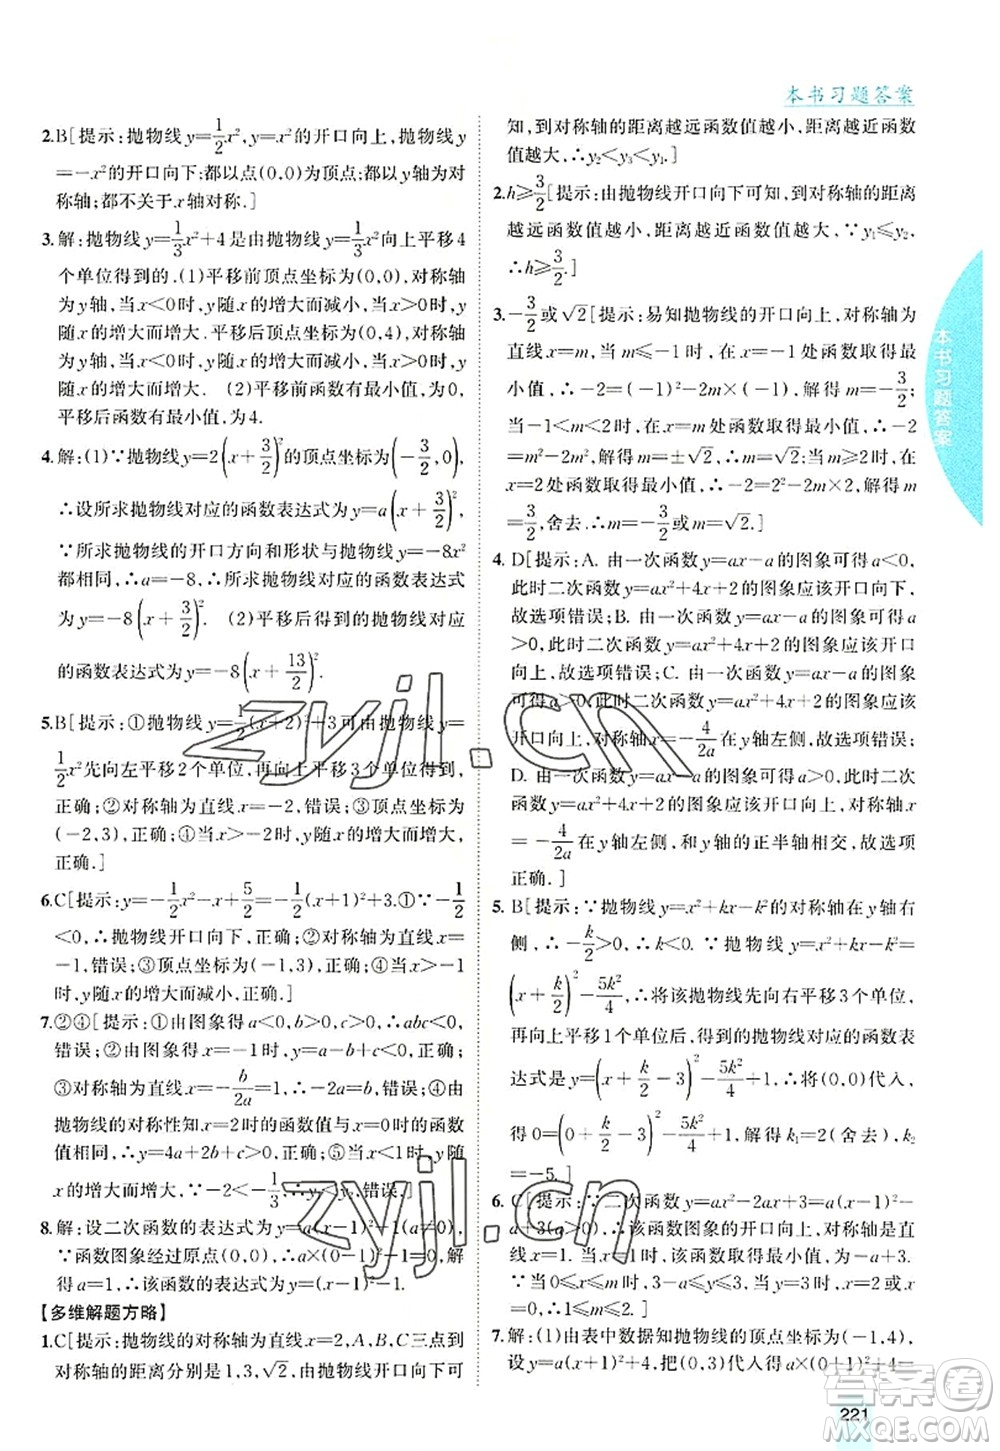 本书习题答案
2.B[提示:抛物线y=1/2x²的开口向上,抛物线y
=-x²的开口向下;都以点(0,0)为顶点;都以y轴为
对称轴;都不关于x轴对称.]
3.解:抛物线y=1/3x²+4是由抛物线y=1/3x²向上平移4
个单位得到的.(1)平移前顶点坐标为(0,0),对称轴
为y轴,当x<0时,y随x的增大而减小,当x>0时,y随
x的增大而增大.平移后顶点坐标为(0,4),对称轴为
y轴,当x<0时,y随x的增大而减小,当x>0时,y随
x的增大而增大. (2)平移前函数有最小值,为0,
平移后函数有最小值,为4.
4.解:(1)∵抛物线y=2(x+3/2)²的顶点坐标为(-3/2,0),
∴设所求抛物线对应的函数表达式为y=a(x+3/2)².
∵所求抛物线的开口方向和形状与抛物线y=-8x²
都相同,∴a=-8,∴所求抛物线对应的函数表达式
为y=-8(x+3/2)². (2)平移后的抛物线对应
的函数表达式为y=-8(x+13/2)².
5.B[提示:①抛物线y=1/2(x+2)²+3可由抛物线y=
1/2x²先向左平移2个单位,再向上平移3个单位得到,
正确;②对称轴为直线x=-2,错误;③顶点坐标为
(-2,3),正确;④当x>-2时,y随x的增大而增大,
正确.]
6.C[提示:y=-1/2x²-x+5/2=-1/2(x+1)²+3.①∵-1/2
<0,∴抛物线开口向下,正确;②对称轴为直线x=
-1,错误;③顶点坐标为(-1,3),正确;④当x>-1
时,y随x的增大而减小,正确.]
7.②④[提示:①由图象得a<0,b>0,c>0,∴abc<0,
错误;②由图象得,当x=1时,y>0,∴a+b+c>0,正确;
③对称轴为直线x=-b/2a=1,∴2a+b=0,错误;④由
抛物线的对称性知x=2时的函数值与x=0时的函数
值相等,∴y=4a+2b+c>0,正确;⑤当x<1时,y随
x的增大而增大,∵-2<-1/3,∴y₁<y₂,错误.]
8.解:设二次函数的表达式为y=a(x-1)²-1(a≠0).
∵函数图象经过原点(0,0),∴a×(0-1)²-1=0,解
得a=1,∴该函数的表达式为y=(x-1)²-1.
【多维解题方略】
1.C[提示:抛物线的对称轴为直线x=2,A,B,C三点到
对称轴的距离分别是1,3,√2.由抛物线开口向下可
知,到对称轴的距离越远函数值越小,距离越近函数
值越大,∴y₂<y₃<y₁.]
2.h≥3/2[提示:由抛物线开口向下可知,到对称轴的距离
越远函数值越小,距离越近函数值越大,∵y₁≤y₂,
∴h≥3/2.]
3.-3/2或√2[提示:易知抛物线的开口向上,对称轴为
直线x=m,当m≤-1时,在x=-1处函数取得最
小值,∴-2=(-1)²-2m×(-1),解得m=-3/2;当
-1<m<2时,在x=m处函数取得最小值,∴-2
=m²-2m²-2m·m,解得m=±√2,∴m=√2;当m≥2时,
在x=2处函数取得最小值,∴-2=2²-4m,解得m
=3/2,舍去.∴m=-3/2或m=√2.]
4.D[提示:A. 由一次函数y=ax-a的图象可得a<0,
此时二次函数y=ax²+4x+2的图象应该开口向下,
故选项错误;B. 由一次函数y=ax-a的图象可得a
>0,此时二次函数y=ax²+4x+2的图象应该开口
向上,故选项错误;C. 由一次函数y=ax-a的图象
可得a>0,此时二次函数y=ax²+4x+2的图象应该
开口向上,对称轴x=-4/2a在y轴左侧,故选项错误;
D. 由一次函数y=ax-a的图象可得a>0,此时二次
函数y=ax²+4x+2的图象应该开口向上,对称轴x
=-4/2a在y轴左侧,与y轴的正半轴相交,故选项
正确.]
5.B[提示:∵抛物线y=x²+kx-k²的对称轴在y轴右
侧,∴-k/2>0,∴k<0.∵抛物线y=x²+kx-k²=
(x+k/2)²-5k²/4,∴将该抛物线先向右平移3个单位,
再向上平移1个单位后,得到的抛物线对应的函数表
达式为y=(x+k/2-3)²-5k²/4+1,∴将(0,0)代入,
得0=(0+k/2-3)²-5k²/4+1,解得k₁=2(舍去),k₂
=-5.]
6.C[提示:∵二次函数y=ax²-2ax+3=a(x-1)²
-a+3(a>0),∴该函数图象的开口向上,对称轴是直
线x=1.当x=1时,该函数取得最小值,为-a+3.
∵当0≤x≤m时,3-a≤y≤3,当y=3时,x=2或x
=0,∴1≤m≤2.]
7.解:(1)由表中数据知抛物线的顶点坐标为(-1,4),
设y=a(x+1)²+4,把(0,3)代入得a(0+1)²+4=
221
zyjl.cn
zyjl.cn
答案圈
MXQE.COM
本书习题答案